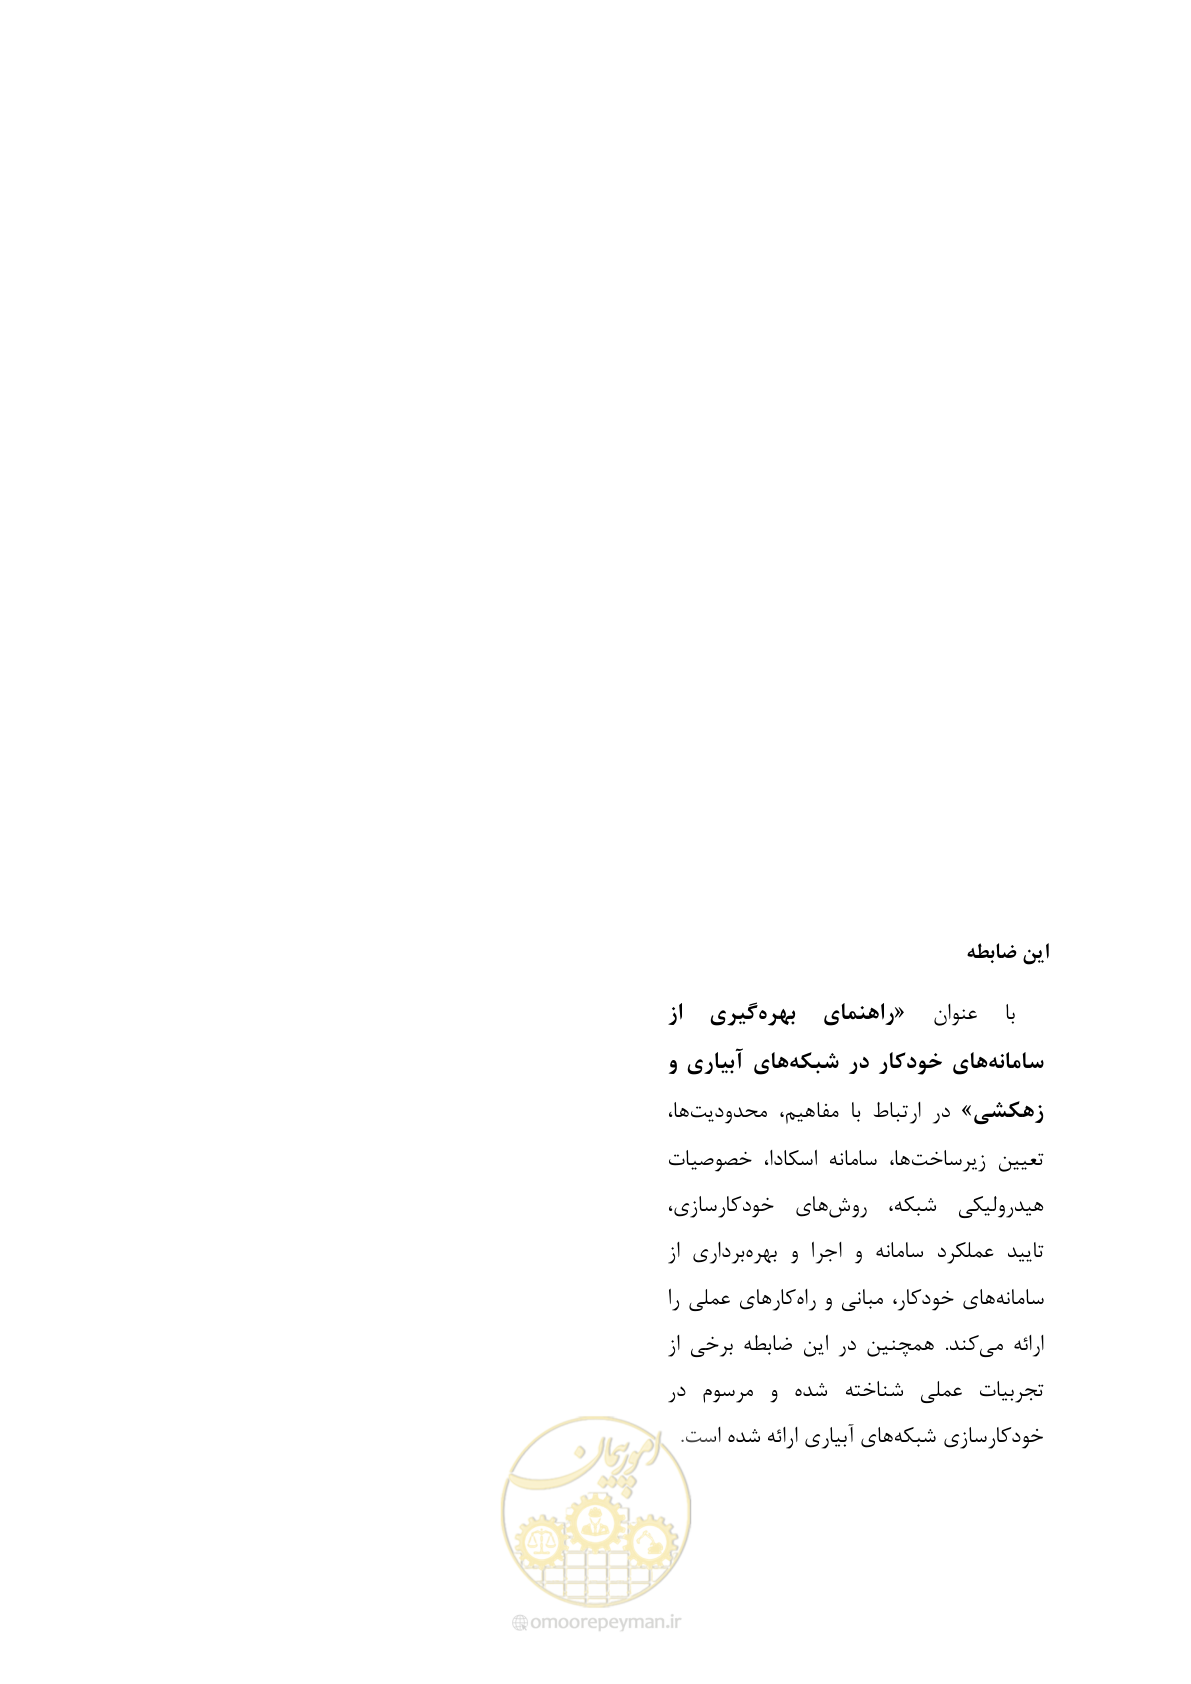 این ضابطه
با عنوان «راهنمای بهره‌گیری از
سامانه‌های خودکار در شبکه‌های آبیاری و
زهکشی» در ارتباط با مفاهیم، محدودیت‌ها،
تعیین زیرساخت‌ها، سامانه اسکادا، خصوصیات
هیدرولیکی شبکه، روش‌های خودکارسازی،
تایید عملکرد سامانه و اجرا و بهره‌برداری از
سامانه‌های خودکار، مبانی و راه‌کارهای عملی را
ارائه می‌کند. همچنین در این ضابطه برخی از
تجربیات عملی شناخته شده و مرسوم در
خودکارسازی شبکه‌های آبیاری ارائه شده است.
امور پیمان
@omoorepeyman.ir